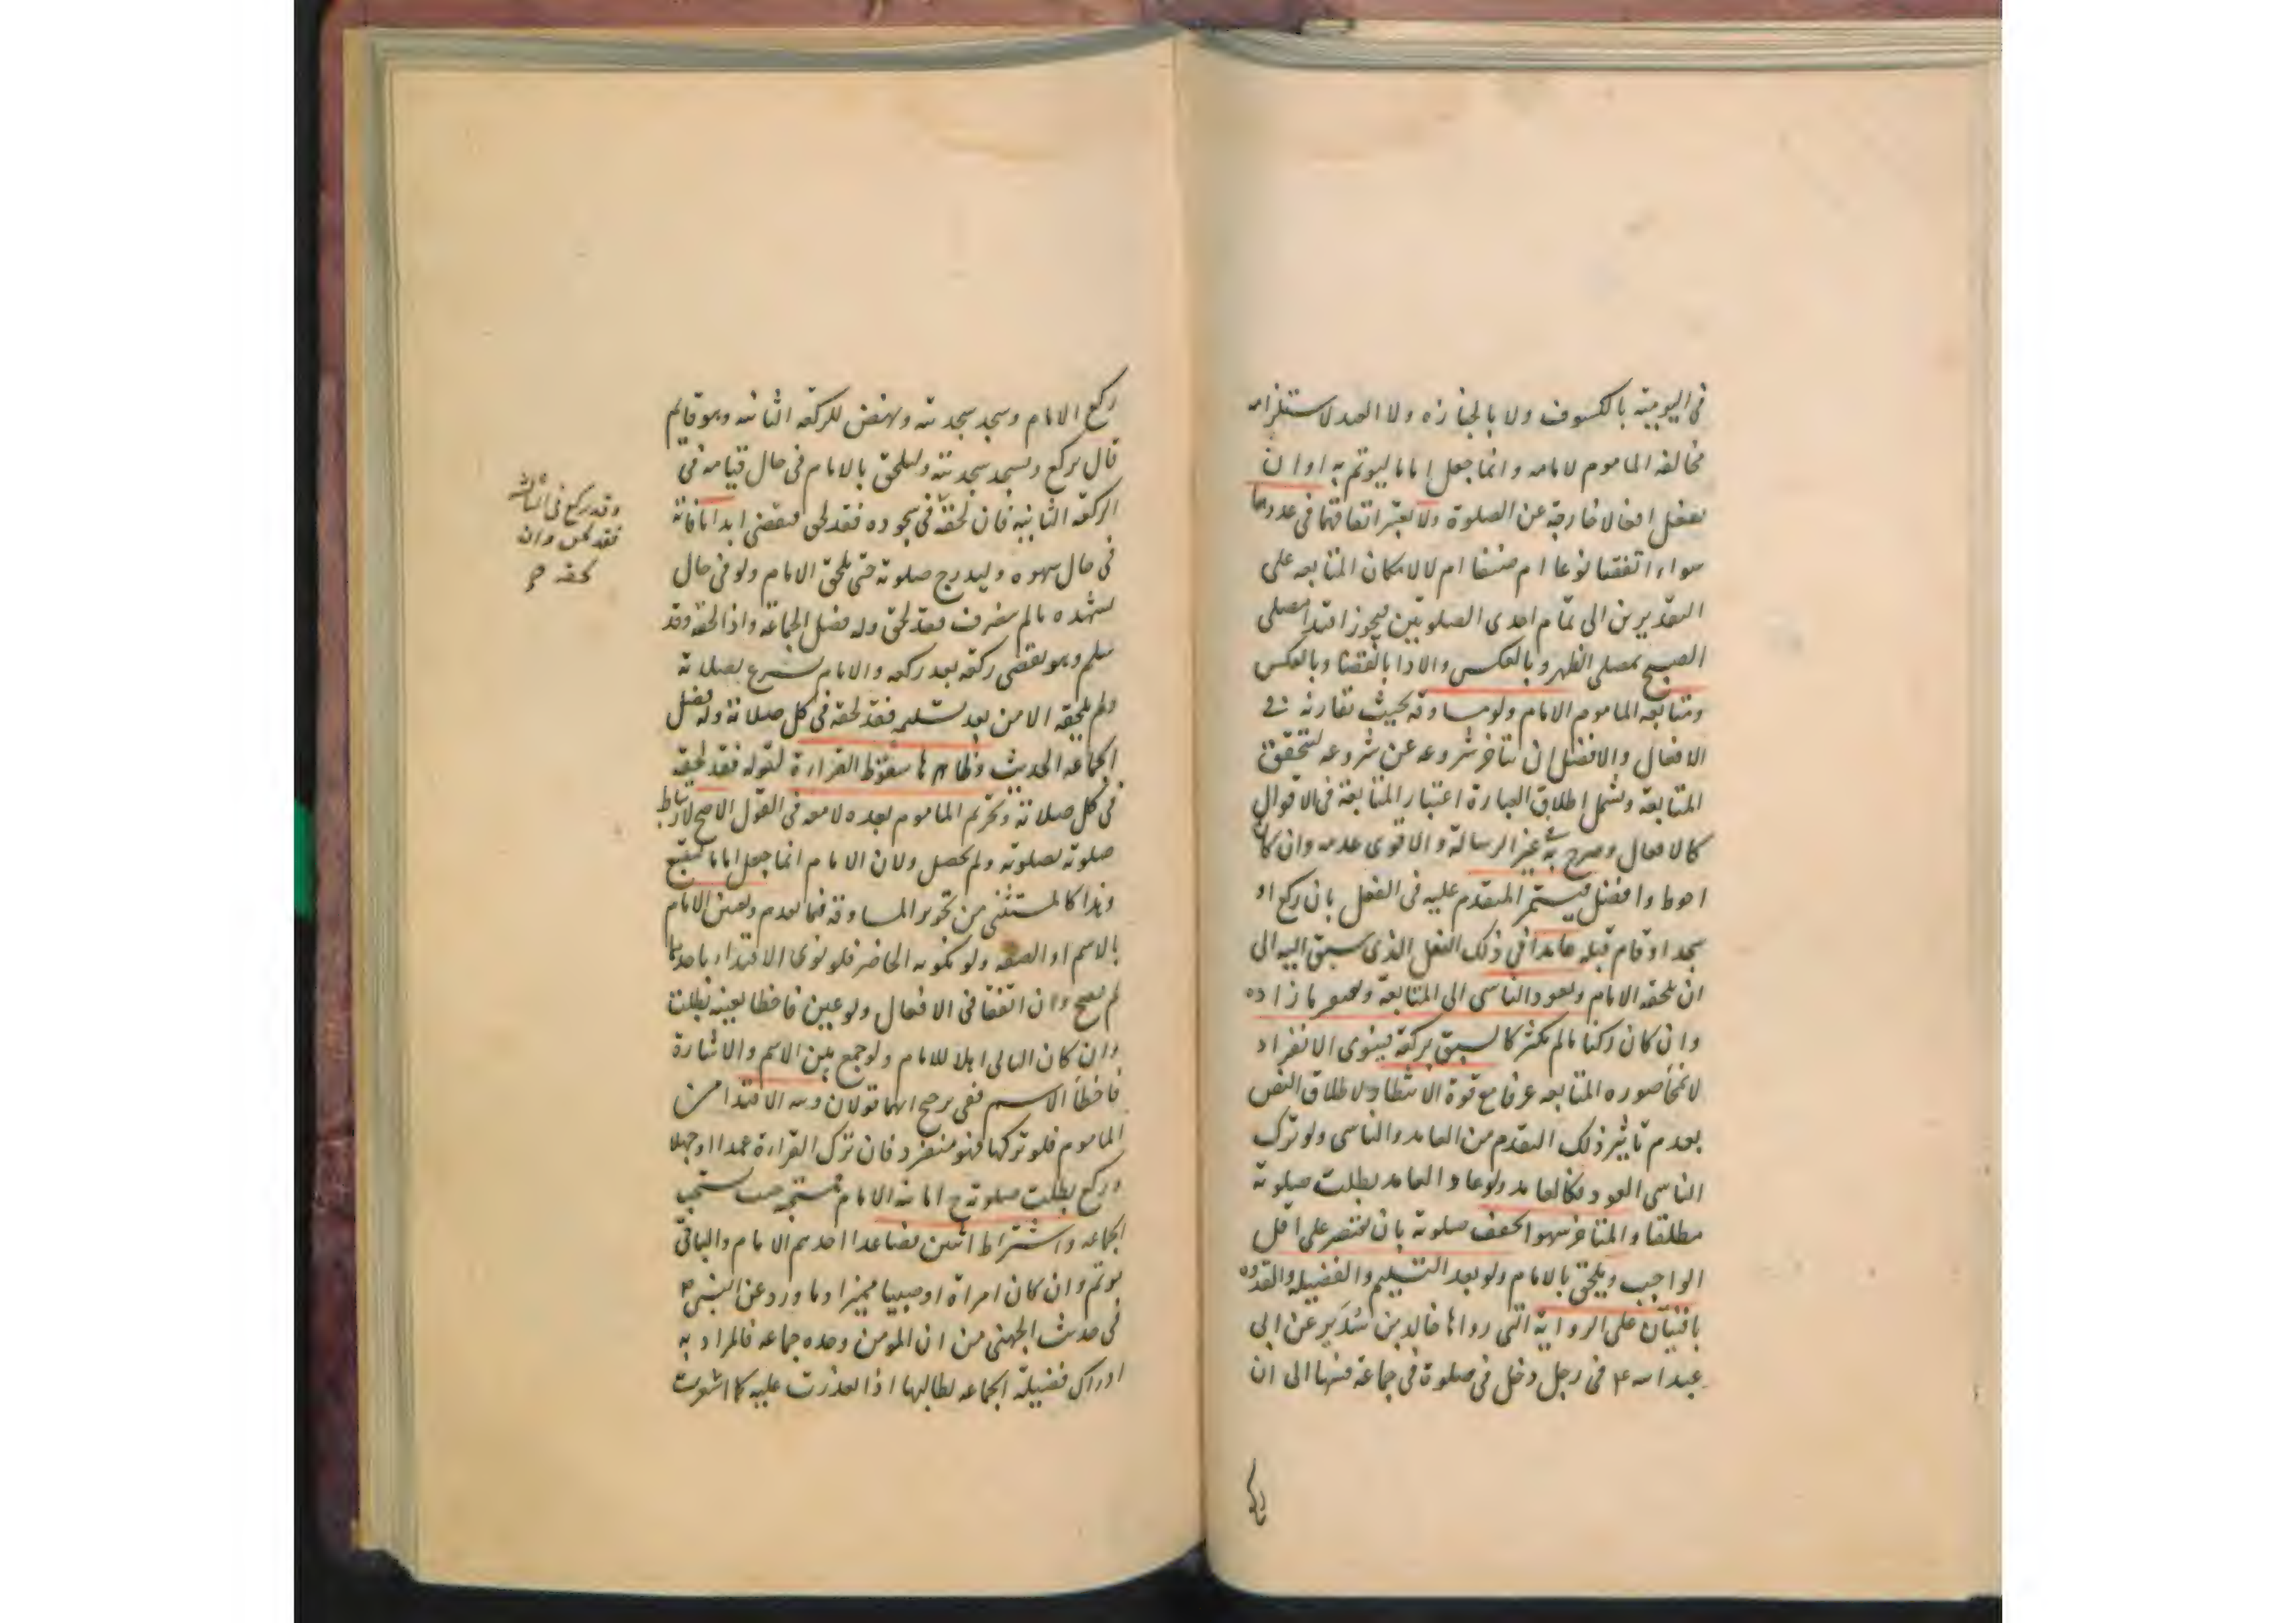 فى اليومية بالكسوف ولا بالجنازه ولا العيد لاستلزامه
مخالفة الماموم لامامه وانما جعل اماما ليوتم به اوان
يفعل افعالا خارجة عن الصلوة ولا يعتبر اتفاقهما فى عددهما
سواء اتفقتا نوعا ام صنفا ام لا لامكان المتابعه على
التقديرين الى تمام احدى الصلوتين فيجوز اقتدا مصلى
الصبح بمصلى الظهر وبالعكس والادا بالقضا وبالعكس
ومتابعه الماموم الامام ولو مساوقه بحيث تقارنه فى
الافعال والافضل ان يتاخر شروعه عن شروعه لتحقق
المتابعة ويشمل اطلاق العبارة اعتبار المتابعة فى الاقوال
كالافعال وصرح به فى غير الرسالة والاقوى عدمه وان كان
احوط وافضل فيستمر المتقدم عليه فى الفعل بان ركع او
سجد او قام قبله عامدا فى ذلك الفعل الذى سبق اليه الى
ان يلحقه الامام ويعود الناسى الى المتابعة ويغتفر ما زاده
وان كان ركنا مالم يكثر كالسبق بركعة فينوى الانفراد
لانمحا صوره المتابعه عرفا مع قوة الانتظار لاطلاق النص
بعدم تاثير ذلك التقدم من العامد والناسى ولو ترك
الناسى العود فكالعامد ولو عاد العامد بطلت صلوته
مطلقا والمتاخر سهوا يخفف صلوته بان يقتصر على اقل
الواجب ويلحق بالامام ولو بعد التسليم والفضيلة والقدوه
باقيتان على الرواية التى رواها خالد بن سدير عن ابى
عبدالله ع فى رجل دخل فى صلوة فى جماعة فسها الى ان
ركع الامام وسجد سجدتيه ونهض للركعه الثانيه وهو قايم
قال يركع ويسجد سجدتيه وليلحق بالامام فى حال قيامه فى
الركعه الثانيه فان لحقه فى سجوده فقد لحق فيقضى ابدا ما فاته
فى حال سهوه وليدرج صلوته حتى يلحق الامام ولو فى حال
تشهده مالم ينصرف فقد لحق وله فضل الجماعة واذا لحقه وقد
سلم وهو يقضى ركعه بعد ركعه والامام بصلاته
ولم يلحقه الا من بعد تسليمه فقد لحقه فى كل صلاته وله فضل
الجماعه الحديث وظاهرها سقوط القراءة لقوله فقد لحقه
فى كل صلاته وتحريم الماموم بعده لا معه فى القول الاصح لارتباط
صلوته بصلوته ولم يحصل ولان الامام انما جعل اماما ليتبع
وهذا كالمستثنى من تجويز المساوقه فيما تقدم وتعيين الامام
بالاسم او الصفه ولو بكونه الحاضر فلو نوى الاقتداء باحدهما
لم يصح وان اتفقا فى الافعال ولو عين فاخطا تعيينه بطلت
وان كان الثانى اهلا للامام ولو جمع بين الاسم والاشارة
فاخطأ الاسم ففى ترجيح ايهما قولان ونية الاقتدا من
الماموم فلو تركها فهو منفرد فان ترك القراءة عمدا او جهلا
وركع بطلت صلوته ح اما نيه الامام فتستحب حيث تستحب
الجماعه واشتراط اثنين فصاعدا احدهم الامام والباقى
موتم وان كان امراة او صبيا مميزا وما ورد عن النبى ص
فى حديث الجهنى من ان المومن وحده جماعه فالمراد به
ادراك فضيلة الجماعه لطالبها اذا تعذرت عليه كما اشعرت
وقد يركع فى الثالثه
فقد لحق وان
لحقه
ركع